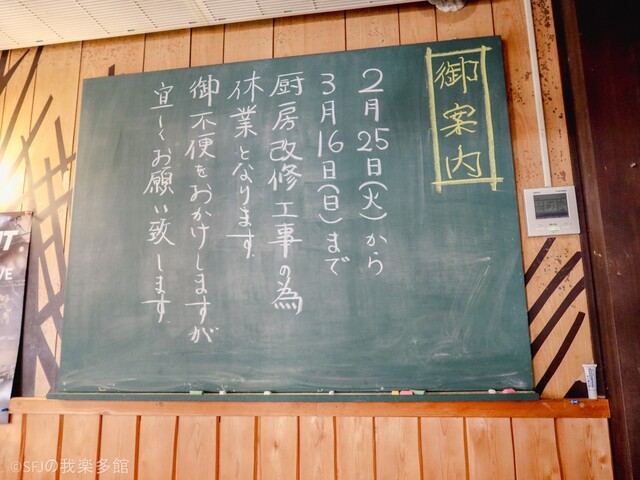 御案内
2月25日(火)から
3月16日(日)まで
厨房改修工事の為
休業となります
御不便をおかけしますが
宜しくお願い致します
NT
VE
©SFJの我楽多館